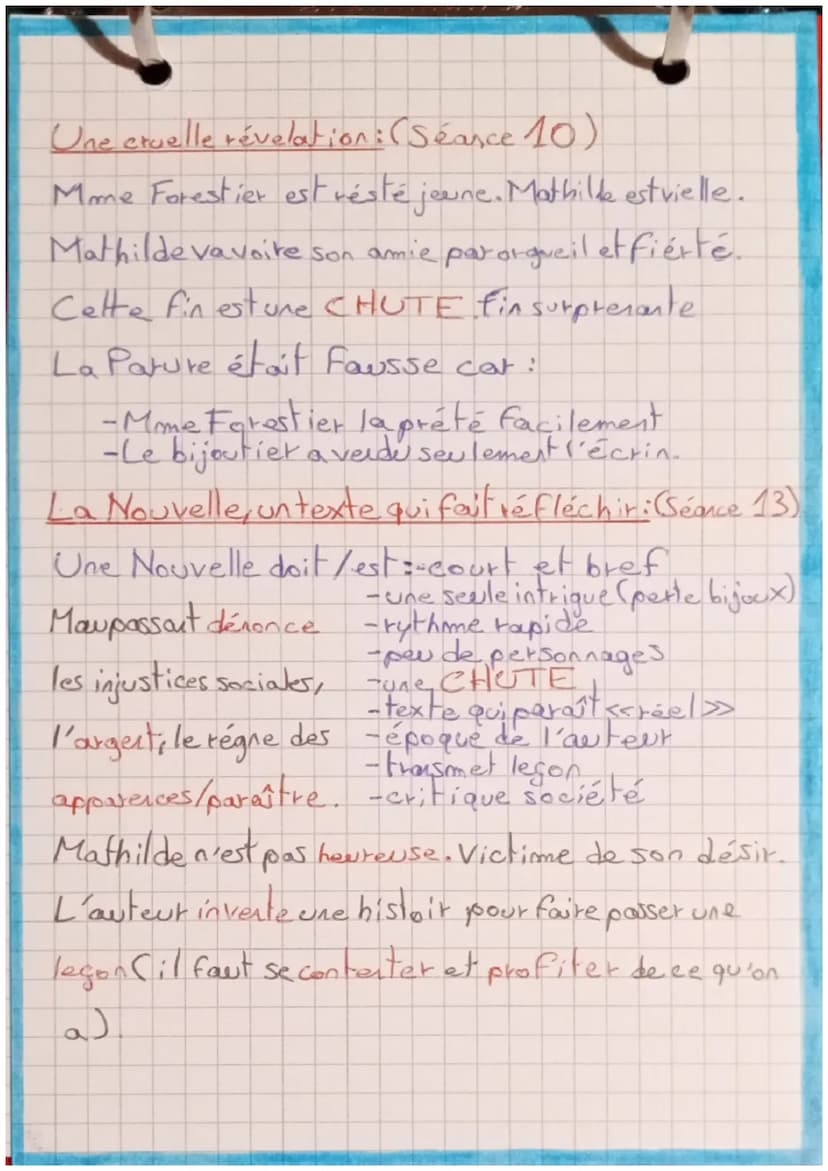 Une cruelle révélation : (Séance 10)
Mme Forestier est résté jeune. Mathilde est vielle.
Mathilde va voire son amie par orgueil et fiérté.
Cette fin est une CHUTE fin surprenante
La Parure était Fausse car :
-Mme Forestier la prété facilement
-Le bijoutier a vendu seulement l'écrin.
La Nouvelle, un texte qui fait réfléchir : (Séance 13)
Une Nouvelle doit/est :-court et bref
-une seule intrigue (perte bijoux)
Maupassant dénonce -rythme rapide
-peu de personnages
les injustices sociales, -une CHUTE
-texte qui paraît <<réel>>
l'argent, le régne des -époque de l'auteur
-transmet leçon
apparences/paraître. -critique société
Mathilde n'est pas heureuse. Victime de son désir.
L'auteur invente une histoir pour faire passer une
leçon (il faut se contenter et profiter de ce qu'on
a).